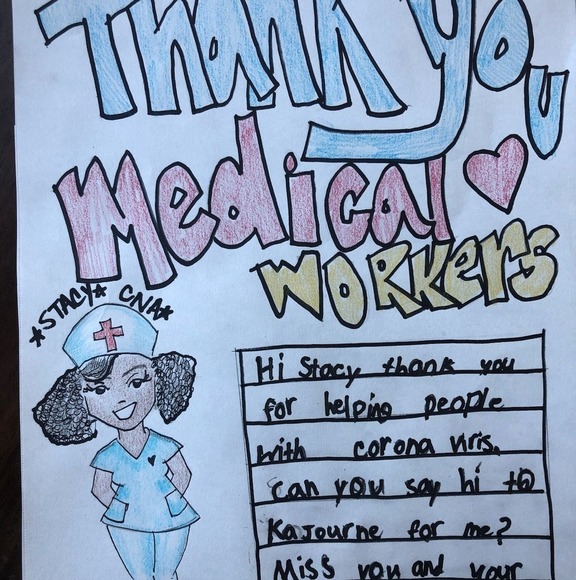 Thank you
Medical
WORKERS
*STACY* CNA*
Hi Stacy thank you
for helping people
with corona viris.
can you say hi to
Kajourne for me?
Miss you and your